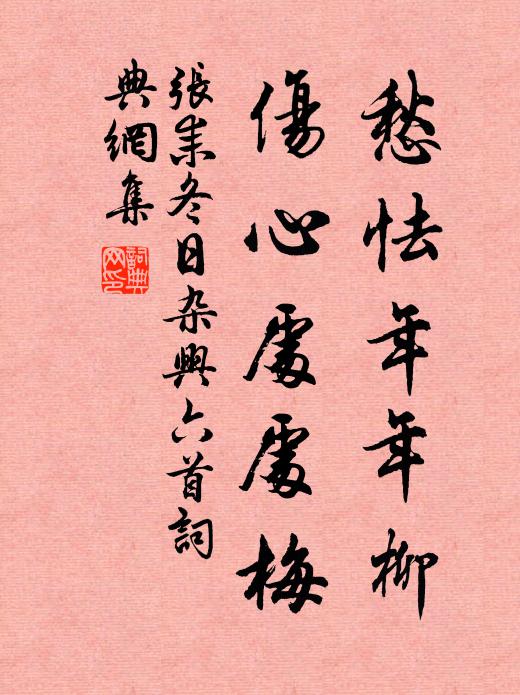 愁怯年年柳
傷心處處梅
張耒冬日杂興六首詞
典網集
詞典网印